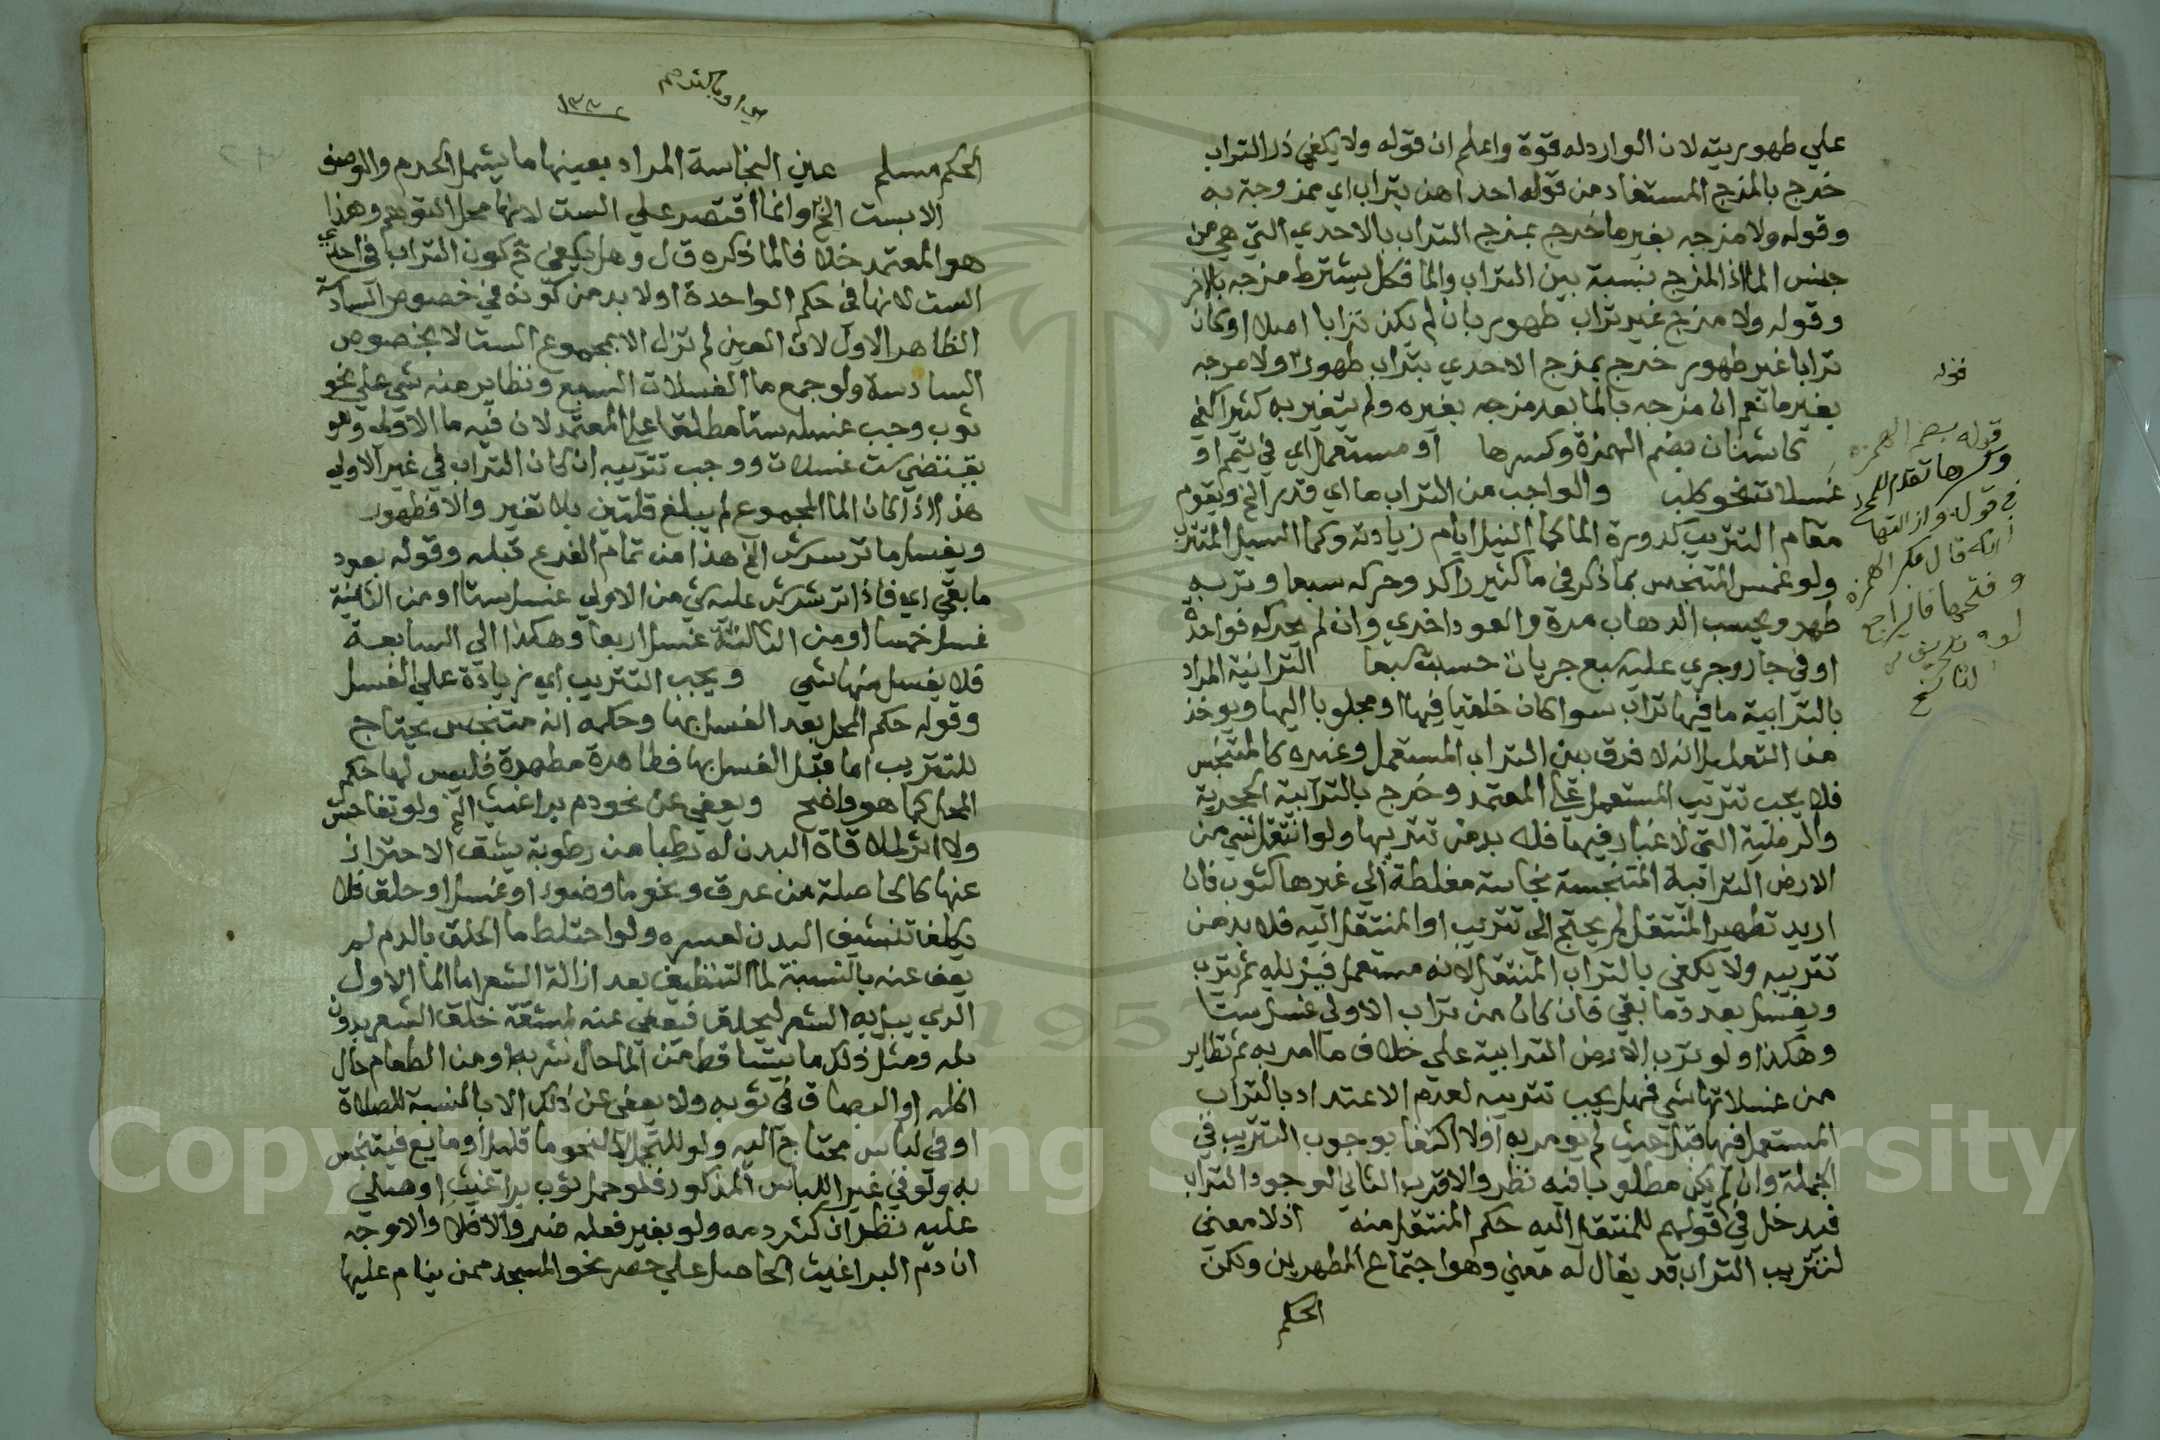 علي طهوريته لان الوارد له قوة واعلم ان قوله ولا يكفي ذر التراب
خرج بالمزج المستفاد من قوله احداهن بتراب اي ممزوجة به
وقوله ولا مزجه بغير ما خرج بمزج التراب بالاحدي التي هي من
جنس الما اذ المزج نسبة بين التراب والما فكل يشترط مزجه بالاخر
وقوله ولا مزج غير تراب طهور بان لم يكن ترابا اصلا او كان
ترابا غير طهور خرج بمزج الاحدي بتراب طهور ولا مزجه
بغير ما نعم ان مزجه بالما بعد مزجه بغيره ولم يتغير به كثيرا كفي
كاشنان بضم الهمزة وكسرها او مستعمل اي في تيمم او
غسلات نحو كلب والواجب من التراب ما اي قدر الخ ويقوم
مقام التتريب كدورة الما كما النيل ايام زيادته وكما السيل المتترب
ولو غمس المتنجس بما ذكر في ما كثير راكد وحركه سبعا وتربه
طهر ويحسب الذهاب مرة والعود اخري وان لم يحركه فواحدة
او في جار وجري عليه سبع جريات حسبت سبعا الترابية المراد
بالترابية ما فيها تراب سوا كان خلقيا فيها او مجلوبا اليها ويوخذ
من التعليل انه لا فرق بين التراب المستعمل وغيره كالمتنجس
فلا يجب تتريب المستعمل علي المعتمد وخرج بالترابية الحجرية
والرملية التي لا غبار فيها فلا بد من تتريبها ولو انتقل شي من
الارض الترابية المتنجسة نجاسة مغلظة الي غيرها كثوب فان
اريد تطهير المنتقل لم يحتج الي تتريب او المنتقل اليه فلا بد من
تتريبه ولا يكفي بالتراب المنتقل لانه مستعمل فيزيله ثم يترب
ويغسل بعدد ما بقي فان كان من تراب الاولي غسل ستا
وهكذا ولو ترب الارض الترابية علي خلاف ما امر به ثم تطاير
من غسلاتها شي فهل يجب تتريبه لعدم الاعتداد بالتراب
المستعمل فيها قبل حيث لم يومر به او لا اكتفا بوجوب التتريب في
الجملة وان لم يكن مطلوبا فيه نظر والاقرب الثاني لوجود التراب
فيدخل في قولهم للمنتقل اليه حكم المنتقل منه اذ لا معني
لتتريب التراب قد يقال له معني وهو اجتماع المطهرين ولكن
الحكم
قوله
قوله بضم الهمزة
وكسرها تقدم للمحل
في قوله وازالتها
انه قال بكسر الهمزة
وفتحها فليراجع
الحكم مسلم عين النجاسة المراد بعينها ما يشمل الجرم والوصف
الا بست الخ وانما اقتصر علي الست لانها محل التوهم وهذا
هو المعتمد خلافا لما ذكره ق ل وهل يكفي ح كون التراب في احدي
الست لانها في حكم الواحدة او لا بد من كونه في خصوص السادسة
الظاهر الاول لان العين لم تزل الا بمجموع الست لا بخصوص
السادسة ولو جمع ما الغسلات السبع وتطاير منه شي علي نحو
ثوب وجب غسله ستا مطلقا علي المعتمد لان فيه ما الاولي وهو
يقتضي ست غسلات ووجب تتريبه ان كان التراب في غير الاولي
هذا اذا كان الما المجموع لم يبلغ قلتين بلا تغير والا فطهور
ويغسل ما ترشرش الخ هذا من تمام الفرع قبله وقوله بعدد
ما بقي اي فاذا ترشرش عليه شي من الاولي غسل ستا او من الثانية
غسل خمسا او من الثالثة غسل اربعا وهكذا الي السابعة
فلا يغسل منها شي ويجب التتريب اي زيادة علي الغسل
وقوله حكم المحل بعد الغسل بها وحكمه انه متنجس يحتاج
للتتريب اما قبل الغسل بها فطاهرة مطهرة فليس لها حكم
المحل كما هو واضح ويعفي عن نحو دم براغيث الخ ولو تفاحش
ولا اثر لملاقاة البدن له رطبا من رطوبة يشق الاحتراز
عنها كالحاصلة من عرق ونحو ما وضوء او غسل او حلق فلا
يكلف تنشيف البدن لعسره ولو اختلط ما الحلق بالدم لم
يعف عنه بالنسبة لما التنظيف بعد ازالة الشعر اما الما الاول
الذي يبل به الشعر ليحلق فيعفي عنه لمشقة حلق الشعر بدون
بله ومثل ذلك ما يتساقط من الما حال شربه او من الطعام حال
اكله او البصاق في ثوبه ولا يعفي عن ذلك الا بالنسبة للصلاة
او في لباس محتاج اليه ولو للتجمل لا لنحو ما قليل او مايع فيتنجس
به ولو في غير اللباس المذكور فلو حمل ثوب براغيث او صلي
عليه نظر ان كثر دمه ولو بغير فعله ضر والا فلا والاوجه
ان دم البراغيث الحاصل علي حصر نحو المسجد ممن ينام عليها